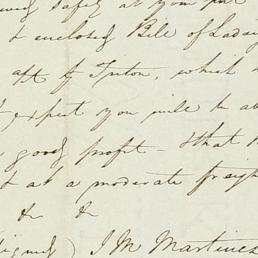 safely at your
enclosed Bill of Lading
of Triton, which
expect you will be
good profit - that
at a moderate freight
& &
(signed) J M Martinez